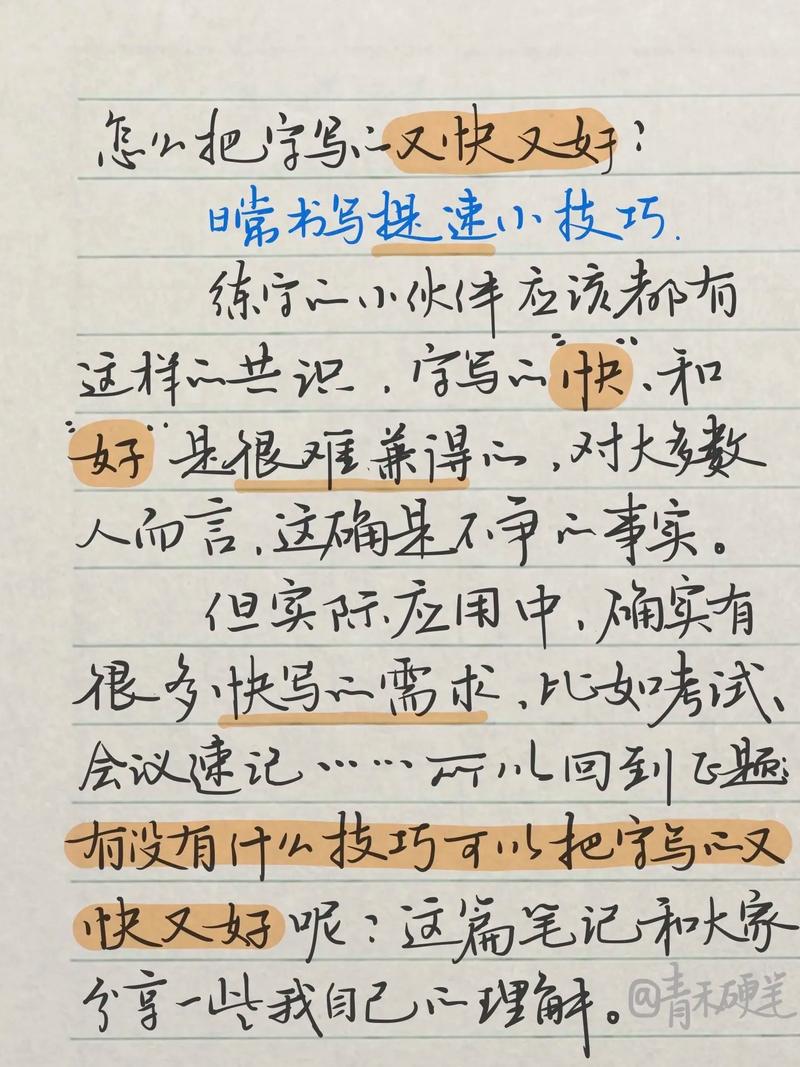 怎么把字写的又快又好?
日常书写提速小技巧.
练字的小伙伴应该都有
这样的共识,字写的"快"、和
"好"是很难兼得的,对大多数
人而言,这确是不争的事实。
但实际应用中,确实有
很多快写的需求,比如考试、
会议速记……所以回到正题:
有没有什么技巧可以把字写的又
快又好呢?这篇笔记和大家
分享一些我自己的理解。
@青禾硬笔